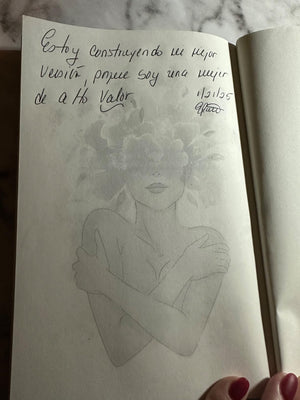 Estoy construyendo mi mejor
Versión, porque soy una mujer
de alto Valor. 1/21/25